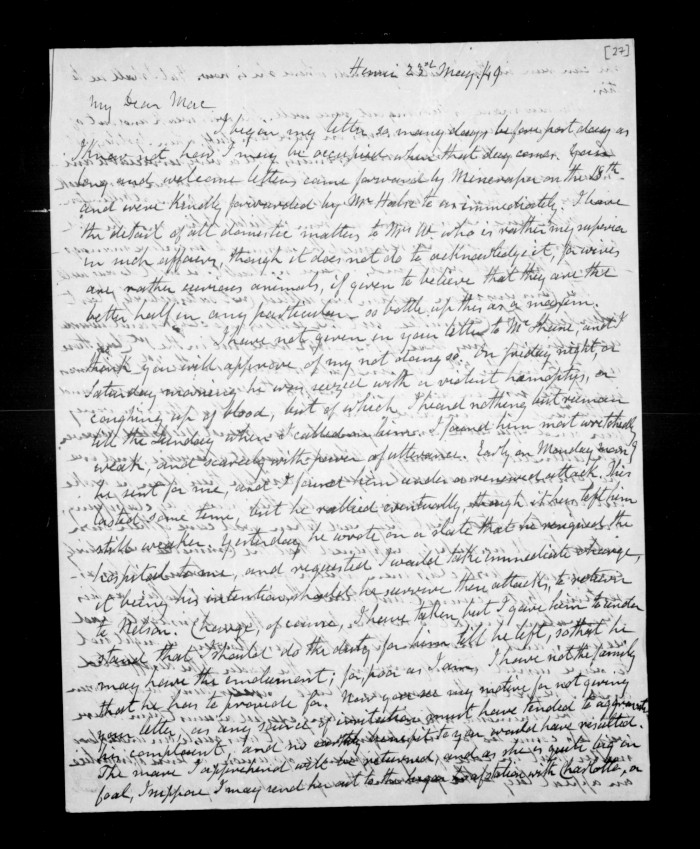 [27]
Henui 23rd May /49
My Dear Mac
I began my letter so many days before post day as
I know not how I may be occupied when that day comes. Your
long and welcome letters came forward by Minerva on the 18th
and were kindly forwarded by Mr Halse to us immediately. I have
the detail of all domestic matters to Mrs W who is rather my superior
in such affairs, though it does not do to acknowledge it, for wives
are rather curious animals, if given to believe that they are the
better half in any particular - so bottle up this as a maxim.
I have not given in your letter to Mr and I
think you will approve of my not doing so. On friday night, or
Saturday morning he was seized with a violent hæmoptysis, or
coughing up of blood, but of which I heard nothing but remain
till the Sunday when I called on him. I found him most wretchedly
weak, and scarcely with power of utterance. Early on Monday morng
he sent for me, and I found him under a renewed attack. This
lasted some time, but he rallied eventually, though it has left him
still weaker. Yesterday he wrote on a slate that he resigned the
hospital to me, and requested I would take immediate charge,
it being his intention, should he survive these attacks, to retire
to Nelson. Charge, of course, I have taken, but I gave him to under
stand that I should do the duty for him till he left, so that he
may have the emolument; for, poor as I am, I have not the family
that he has to provide for. Now you see my motive for not giving
your letter, as any source of irritation must have tended to aggravate
his complaint, and no earthly benefit to you would have resulted.
The mare I apprehend will be returned, and as she is quite big in
foal, I suppose I may send her out to the station with Charlotte, or